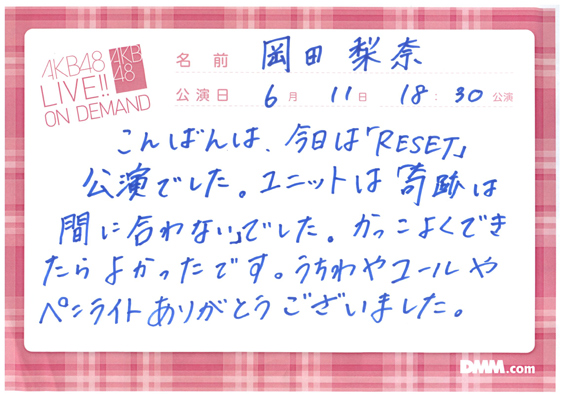 AKB48
LIVE!!
ON DEMAND
AKB
48
名前 岡田梨奈
公演日 6月 11日 18:30公演
こんばんは、今日は「RESET」
公演でした。ユニットは「奇跡は
間に合わない」でした。かっこよくでき
たらよかったです。うちわやコールや
ペンライトありがとうございました。
DMM.com